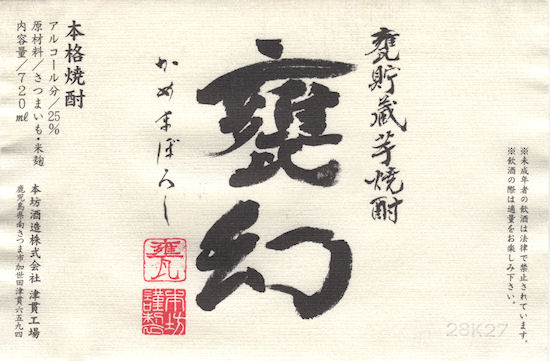 甕貯蔵芋焼酎
甕幻
かめまぼろし
本格焼酎
アルコール分／25%
原材料／さつまいも・米麹
内容量／720㎖
本坊酒造株式会社 津貫工場
鹿児島県南さつま市加世田津貫六五九四
※未成年者の飲酒は法律で禁止されています。
※飲酒の際は適量をお楽しみ下さい。
本坊
謹製
28K27